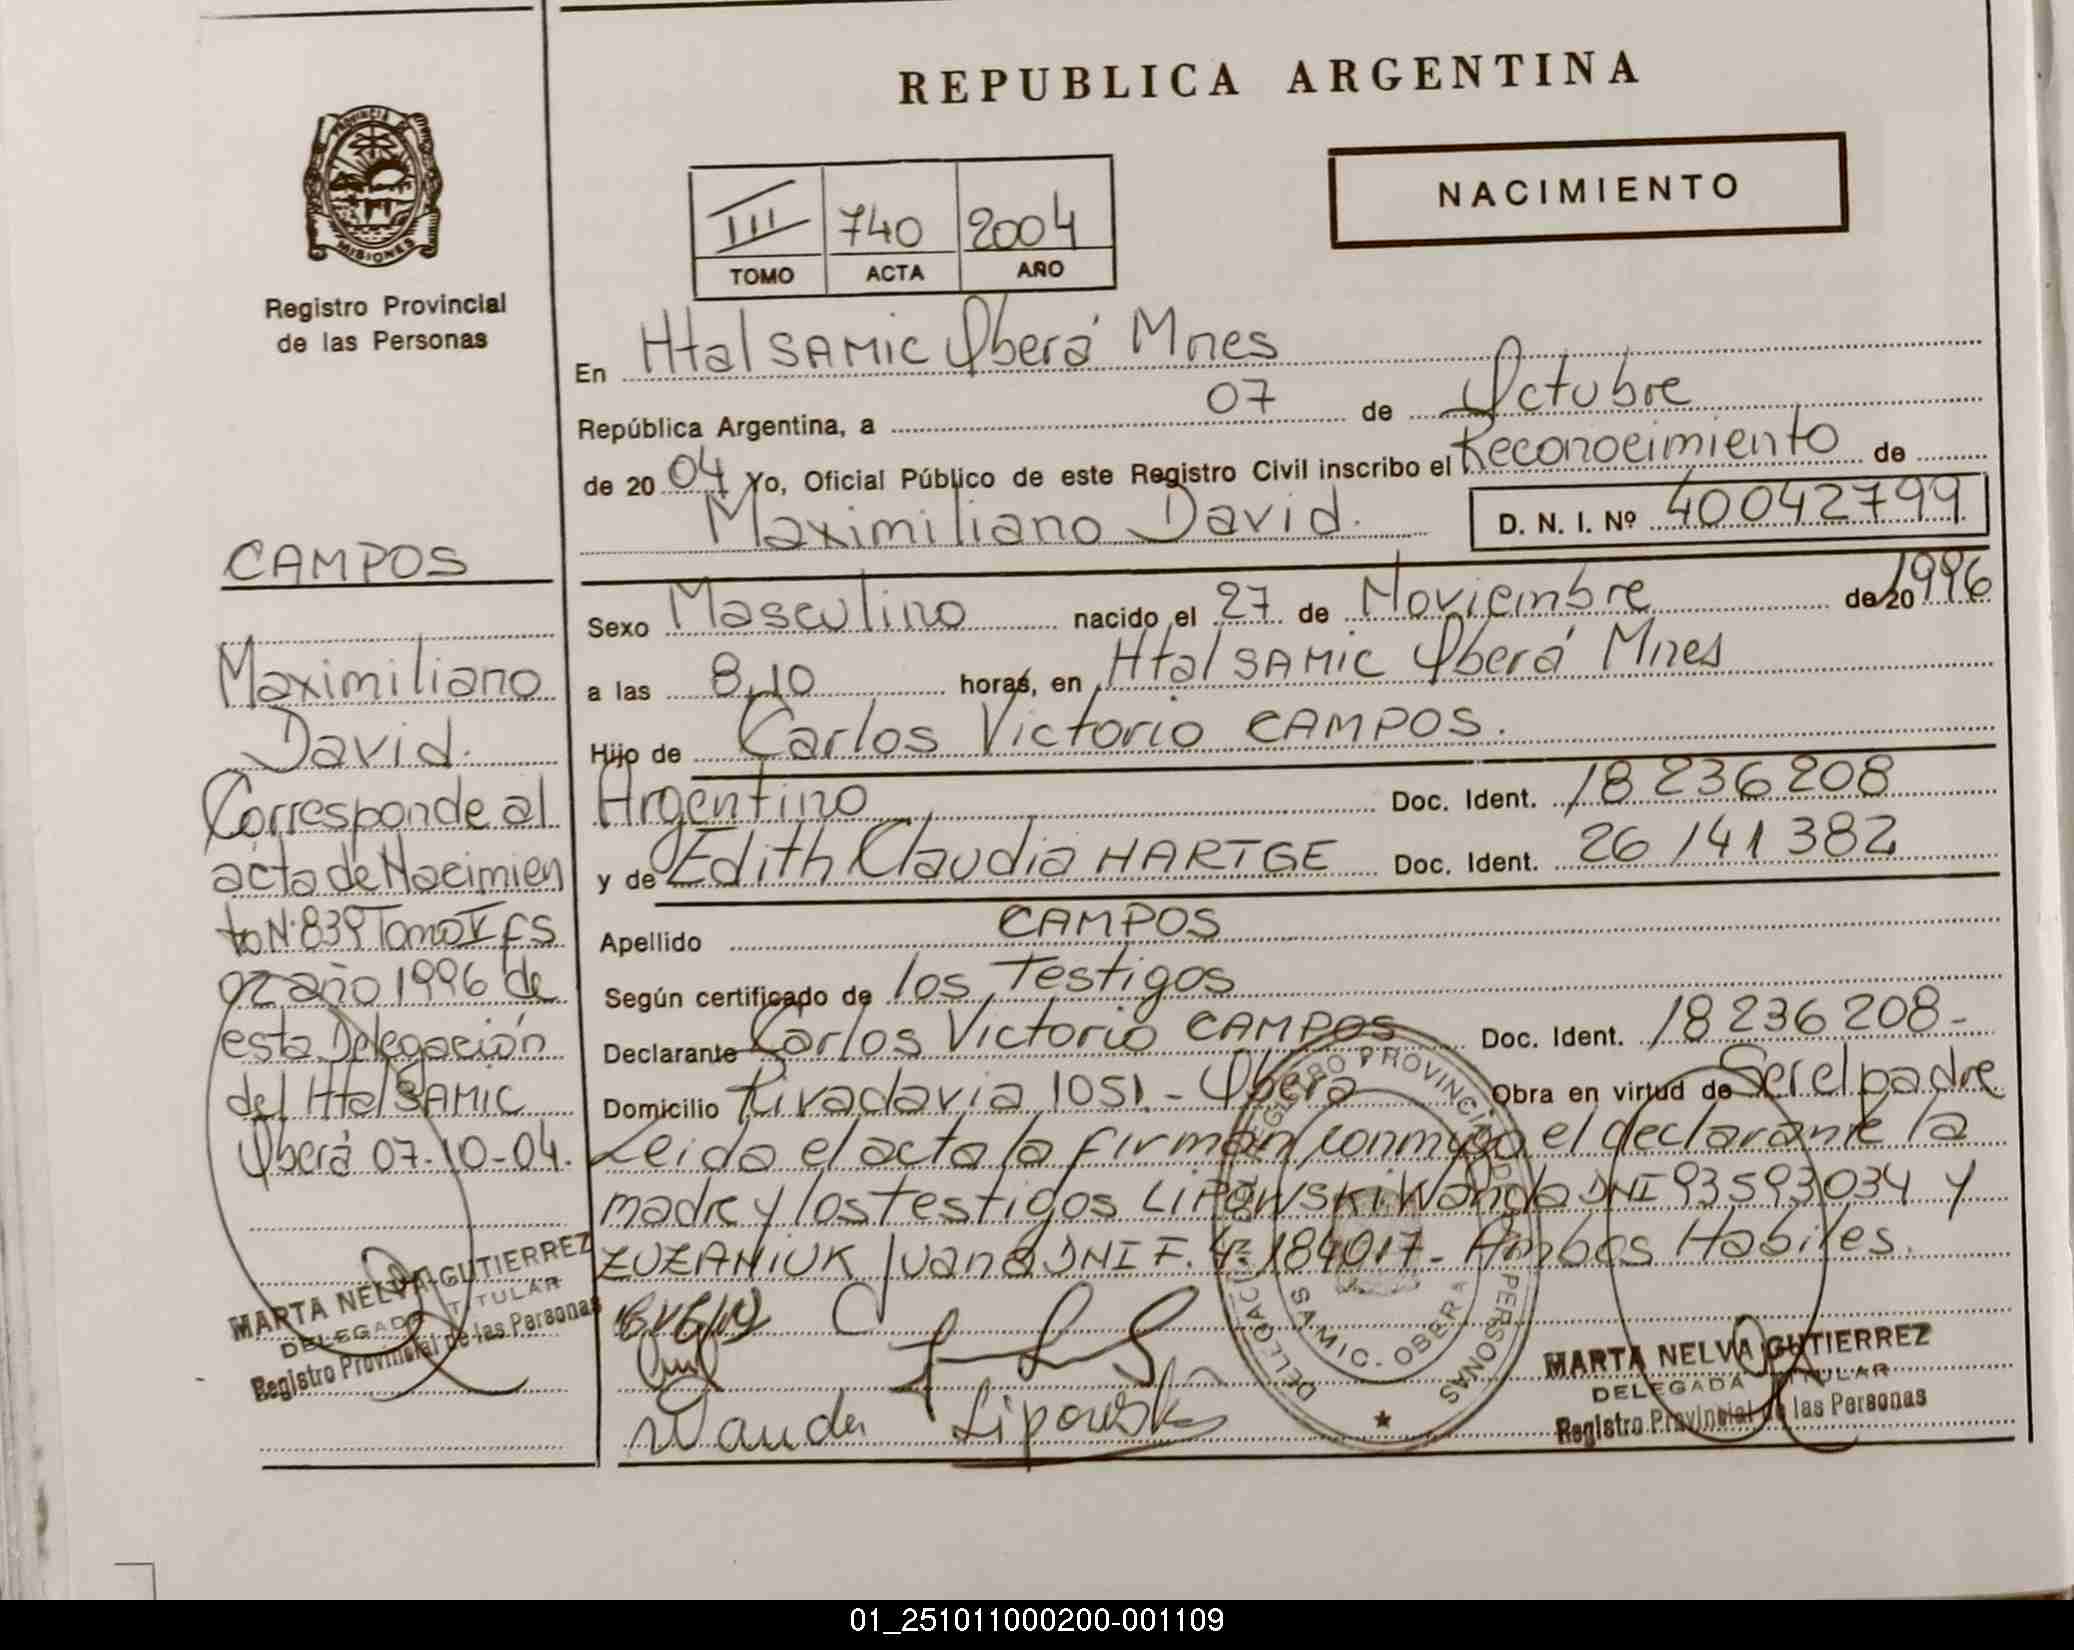 REPUBLICA ARGENTINA
NACIMIENTO
PROVINCIA DE
MISIONES
Registro Provincial
de las Personas
III 740 2004
TOMO ACTA AÑO
En Htal SAMIC Oberá Mnes
República Argentina, a 07 de Octubre
de 2004 Yo, Oficial Público de este Registro Civil inscribo el Reconocimiento de
Maximiliano David. D. N. I. Nº 40042799
Sexo Masculino nacido el 27 de Noviembre de 20 1996
a las 8,10 horas, en Htal SAMIC Oberá Mnes
Hijo de Carlos Victorio CAMPOS.
Argentino Doc. Ident. 18 236 208
y de Edith Claudia HARTGE Doc. Ident. 26 141 382
Apellido CAMPOS
Según certificado de los Testigos
Declarante Carlos Victorio CAMPOS Doc. Ident. 18 236 208-
Domicilio Rivadavia 1051.- Oberá Obra en virtud de Ser el padre
Leida el acta la firman conmigo el declarante la
madre y los testigos LIPOWSKI Wanda DNI 93593034 y
ZUZANIUK Juana DNI F. 4.184017- Ambos Habiles.
Wanda Lipowski
CAMPOS
Maximiliano
David.
Corresponde al
acta de Nacimien
to Nº 839 Tomo V FS
02 año 1996 de
esta Delegación
del Htal SAMIC
Oberá 07-10-04.
MARTA NELVA GUTIERREZ
DELEGADA TITULAR
Registro Provincial de las Personas
REGISTRO PROVINCIAL DE LAS PERSONAS
SAMIC. OBERA
MARTA NELVA GUTIERREZ
DELEGADA TITULAR
Registro Provincial de las Personas
01_251011000200-001109